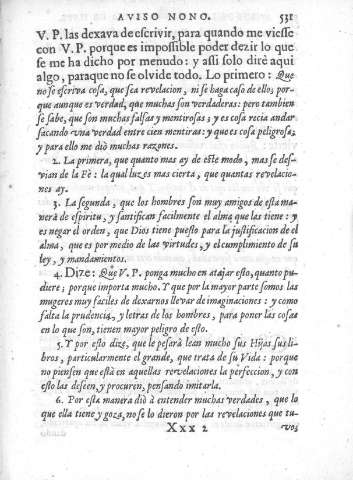 AVISO NONO. 531
V. P. las dexava de escrivir, para quando me viesse
con V. P. porque es impossible poder dezir lo que
se me ha dicho por menudo: y assi solo dirè aqui
algo, paraque no se olvide todo. Lo primero: Que
no se escriva cosa, que sea revelacion, ni se haga caso de ello; por-
que aunque es verdad, que muchas son verdaderas: pero tambien
se sabe, que son muchas falsas y mentirosas; y es cosa recia andar
sacando una verdad entre cien mentiras: y que es cosa peligrosa;
y para ello me diò muchas razones.
2. La primera, que quanto mas ay de este modo, mas se des-
vian de la Fè: la qual luz es mas cierta, que quantas revelacio-
nes ay.
3. La segunda, que los hombres son muy amigos de esta ma-
nera de espiritu, y santifican facilmente el alma que las tiene: y
es negar el orden, que Dios tiene puesto para la justificacion de el
alma, que es por medio de las virtudes, y el cumplimiento de su
ley, y mandamientos.
4. Dize: Que V. P. ponga mucho en atajar esto, quanto pu-
diere; porque importa mucho. Y que por la mayor parte somos las
mugeres muy faciles de dexarnos llevar de imaginaciones: y como
falta la prudencia, y letras de los hombres, para poner las cosas
en lo que son, tienen mayor peligro de esto.
5. Y por esto dize, que le pesarà lean mucho sus Hijas sus li-
bros, particularmente el grande, que trata de su Vida: porque
no piensen que està en aquellas revelaciones la perfeccion, y con
esto las deseen, y procuren, pensando imitarla.
6. Por esta manera diò à entender muchas verdades, que lo
que ella tiene y goza, no se lo dieron por las revelaciones que tu-
Xxx 2 vo;